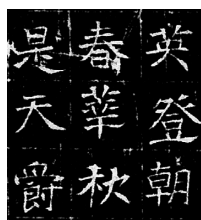 英登朝
春華秋
是天爵